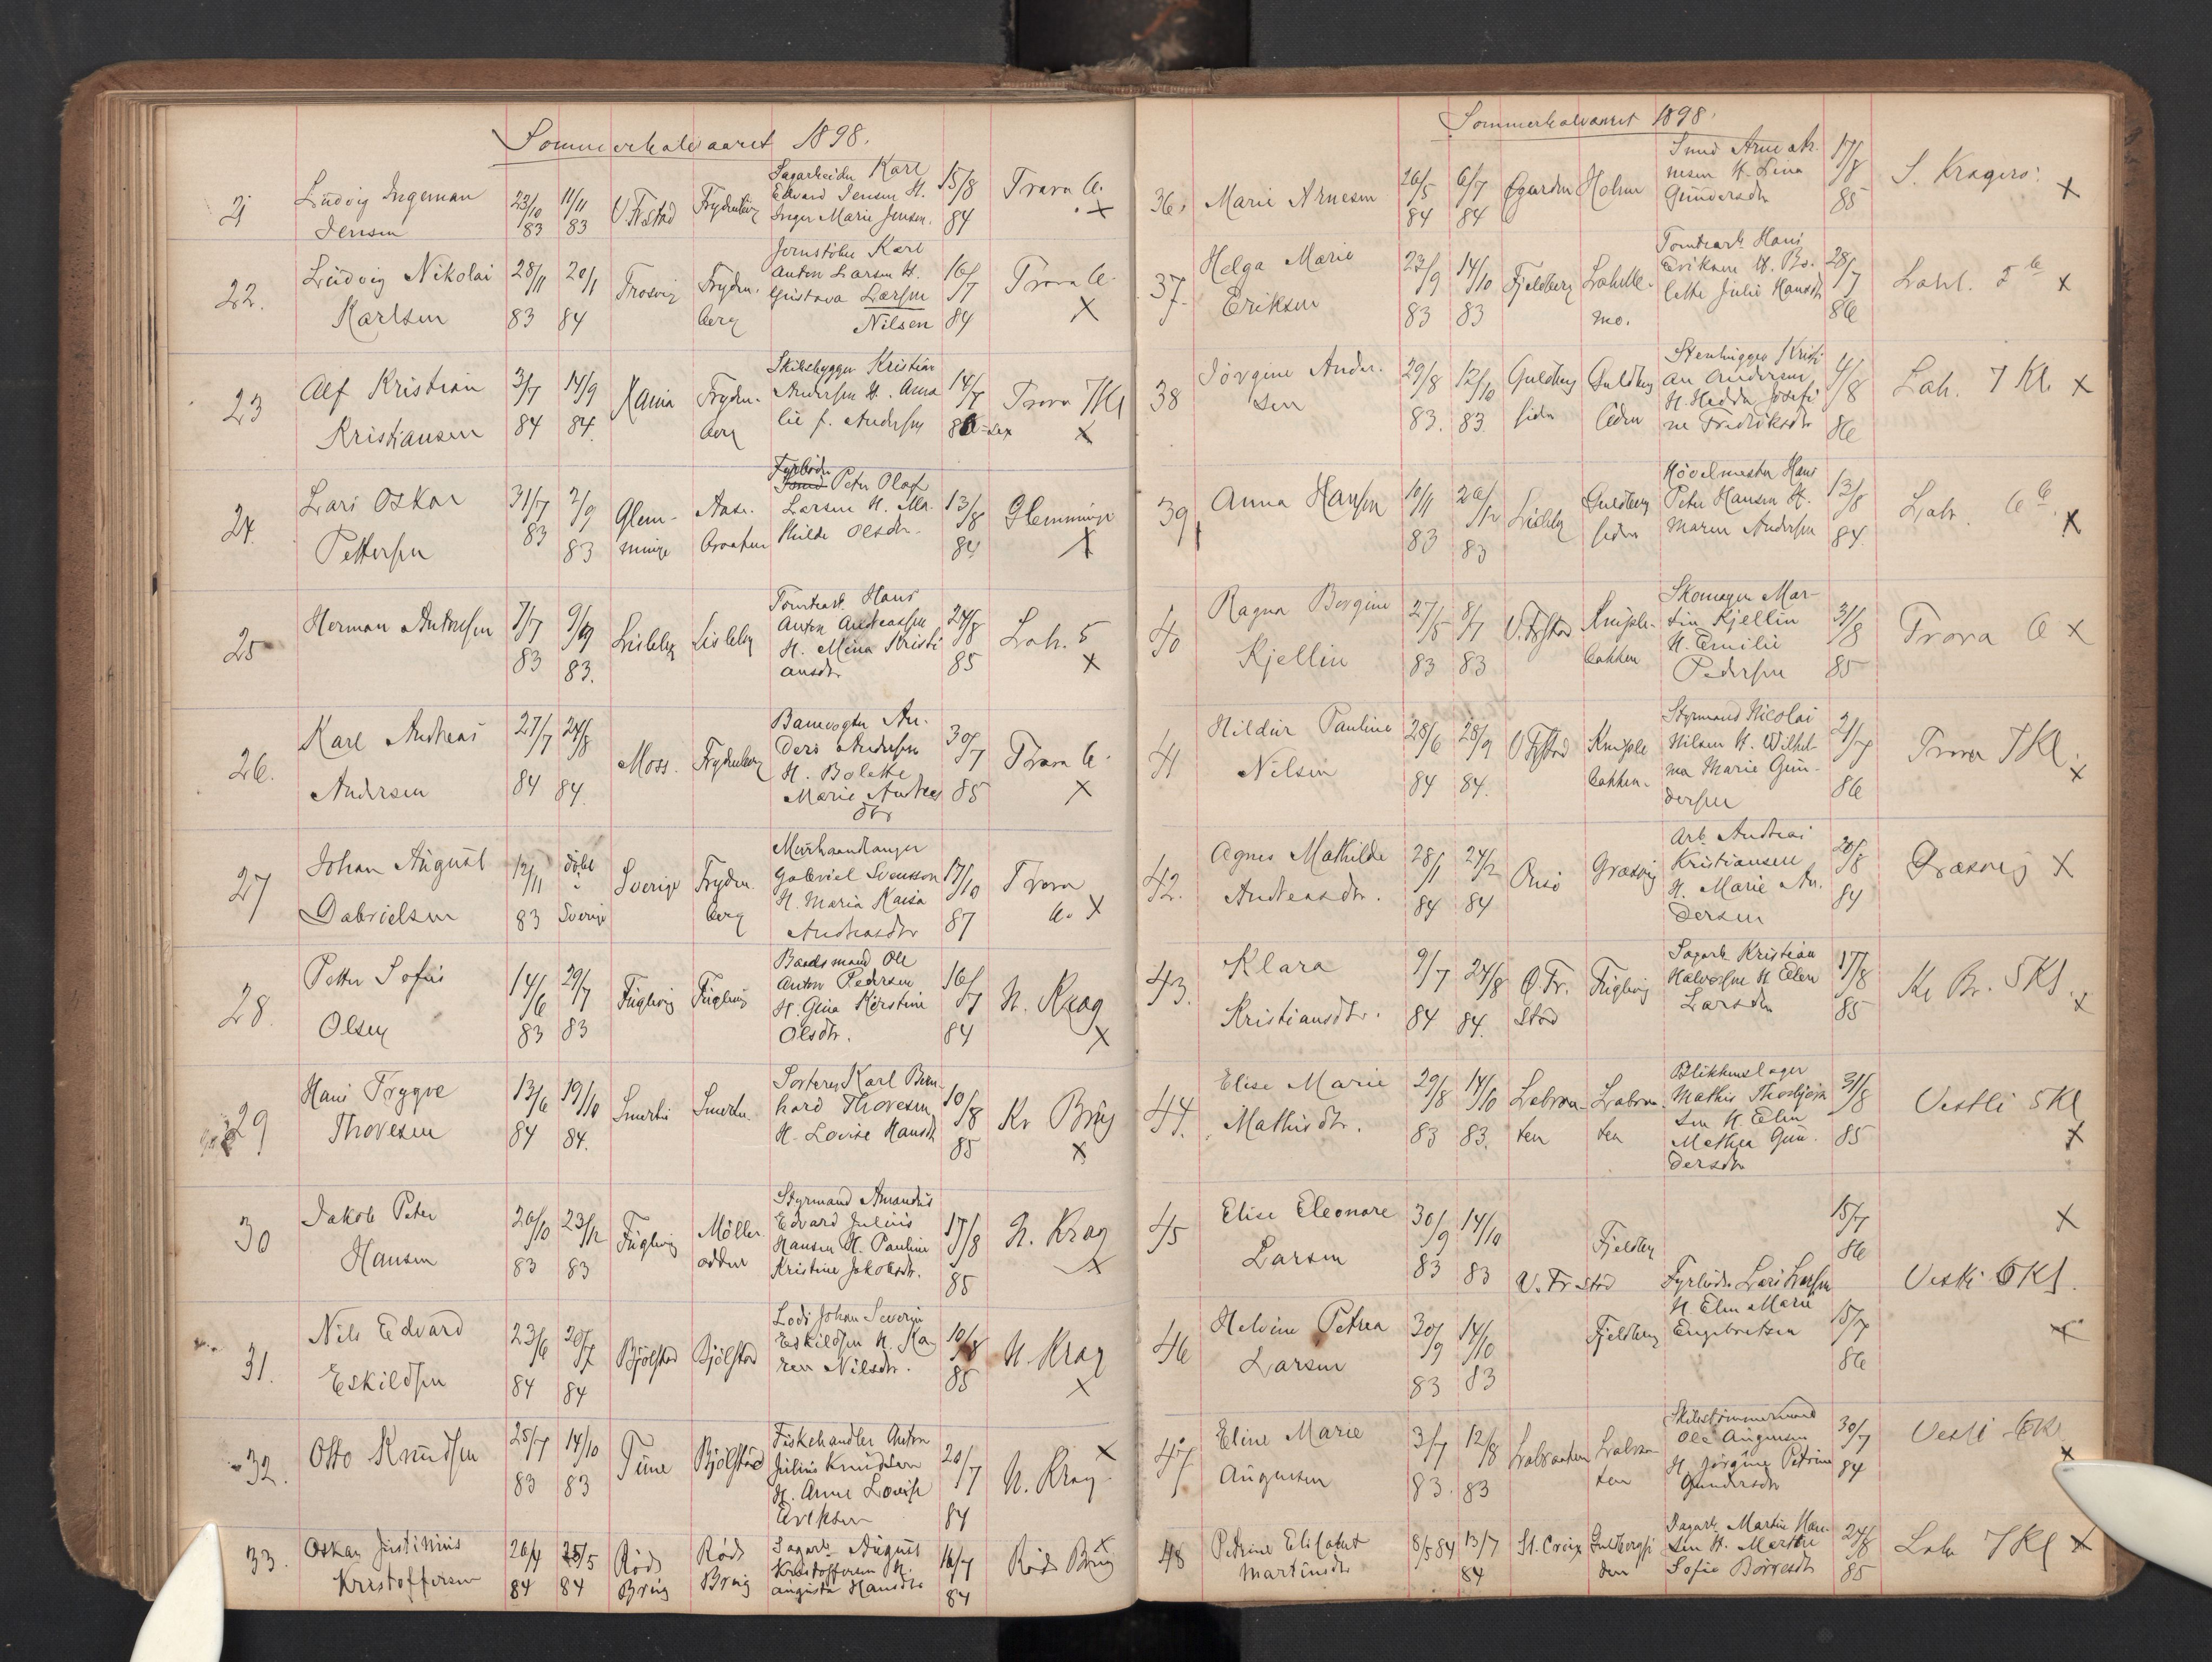 Sommerhalvaaret 1898.
21 Ludvig Ingeman Jensen 23/10 83 11/11 83 V. Frstad Frydenberg Sagarbeider Karl Edvard Jensen H. Inger Marie Jensen. 15/8 84 Trara 6. X
22. Ludvig Nikolai Karlsen 28/11 83 20/1 84 Trosvig Frydenberg Jernstöber Karl Anton Larsen H. Gustava Larsen Nilsen 16/7 84 Trara 6 X
23 Alf Kristian Kristiansen 3/7 84 14/9 84. Frydenberg Skibsbygger Kristian Andersen H. Amalie f. Andersen 14/7 Trara 7 Kl X
24. Lars Oskar Pettersen 31/7 83 2/9 83 Glemminge Aasebraaten Fyrböder Peter Olaf Larsen H. Mathilde Olsdtr. 13/8 84 Glemminge X
25 Herman Antonsen 7/7 83 9/9 83. Lisleby Lisleby Tomtearb. Hans Anton Andreassen H. Mina Kristiansdtr 24/8 85 Lah. 5 X
26. Karl Andreas Andersen 27/7 84 24/8 84 Moss. Frydenberg Banevogter Anders Andersen H. Bolette Marie Andreasdtr 30/7 85 Trara 6. X
27 Johan August Gabrielsen 12/11 83 döbt i Sverige Sverige Frydenberg Murhaandlanger Gabriel Svensson H. Maria Kaisa Andreasdtr 17/10 87 Trara 6. X
28. Petter Sofus Olsen 14/6 83 29/7 83 Fuglevig Fuglevig Baadsmand Ole Anton Pedersen H. Gina Kirstine Olsdtr. 16/7 84 N. Krag X
29 Hans Trygve Thoresen 13/6 84 19/10 84. Smertu Smertu. Karl Bernhard Thoresen H. Lovise Hansdtr 10/8 85 Kr Brug X
30 Jakob Peter Hansen 26/10 83 23/12 83 Fuglevig Mölleodden Styrmand Amandus Edvard Julius Hansen H. Pauline Kristine Jakobsdtr. 17/8 85 N. Krag X
31. Nils Edvard Eskildsen 23/6 84 20/7 84 Bjölstad Bjölstad Lods Johan Severin Eskildsen H. Karen Nilsdtr. 10/8 85 N. Krag X
32. Otto Knudsen 25/7 83 14/10 83 Tune Bjölstad Fiskehandler Anton Julius Knudsen H. Anne Lovise Eriksen 20/7 84 N. Krag. X
33. Oskar Justinius Kristoffersen 26/4 84 25/5 84 Röds Brug Röds Brug Sagarb. August Kristoffersen H. Augusta Hansdtr 16/7 84 Röds Brug X
Sommerhalvaaret 1898.
36. Marie Arnesen 26/5 84 6/7 84 Øgarden Holm Smed Arne Arnesen H. Lina Gundersdtr 17/8 85 S. Kragerö X
37. Helga Marie Eriksen 23/9 83 14/10 83 Fjeldberg Lahellemo. Tomtearb. Hans Eriksen H. Bolette Julie Hansdtr 28/7 86 Lahl. 5 kl X
38 Jörgine Andersen 29/8 83. 12/10 83. Guldbergsiden Guldbergsiden Stenhugger Kristian Andersen H. Hedda Josefine Fredriksdtr 4/8 86 Lah. 7 Kl X
39 Anna Hansen 10/11 83 26/12 83 Lisleby Guldbergsiden Hövelmester Hans Peter Hansen H. Maren Andersen 13/8 84 Lah. 6 kl. X
40 Ragna Borgine Kjellin 27/5 83 8/7 83 V. Frstad Kniplebakken Skomager Martin Kjellin H. Emilie Pedersen 31/8 85 Trara 6 X
41 Hildur Pauline Nilsen 28/6 84 28/9 84. V Frstad Kniplebakken. Styrmand Nicolai Nilsen H. Wilhelmina Marie Gundersen 21/7 86 Trara 7 Kl. X
42. Agnes Mathilde Andreasdtr. 28/1 84 24/2 84 Onsö Græsvig Arb. Andreas Kristiansen H. Marie Andersen 20/8 84 Græsvig X
43. Klara Kristiansdtr. 9/7 84 24/8 84. Ø. Fr. stad Fuglevig Sagarb Kristian Halvorsen H Elen Larsdtr 17/8 85 Kr Br. 5 Kl. X
44. Elise Marie Mathisdtr. 29/8 83 14/10 83. Labraaten Labraaten Blikkenslager Mathis Thorbjörnsen H. Elen Mathea Gundersdtr 31/8 85 Vestli 5 Kl X
45 Elise Eleonore Larsen 30/9 83 14/10 83 V. Fr.stad Fjeldberg Fyrböder Lars Larsen H. Elen Marie Engebretsen 15/7 86 Vestli 6 Kl. X
46 Helvine Petrea Larsen 30/9 83 14/10 83 Fjeldberg 15/7 86 X
47 Eline Marie Augensen 3/7 83. 12/8 83 Labraaten Labraaten Skibstömmermand Ole Augensen H. Jörgine Petrine Gundersdtr 30/7 84 Vestli 6 Kl X
48 Petrine Elisabet Martinsdtr 8/5 84 13/7 84 St. Croix Guldbergsiden Sagarb. Martin Hansen H. Marthe Sofie Börresdtr 24/8 85 Lah 7 Kl X